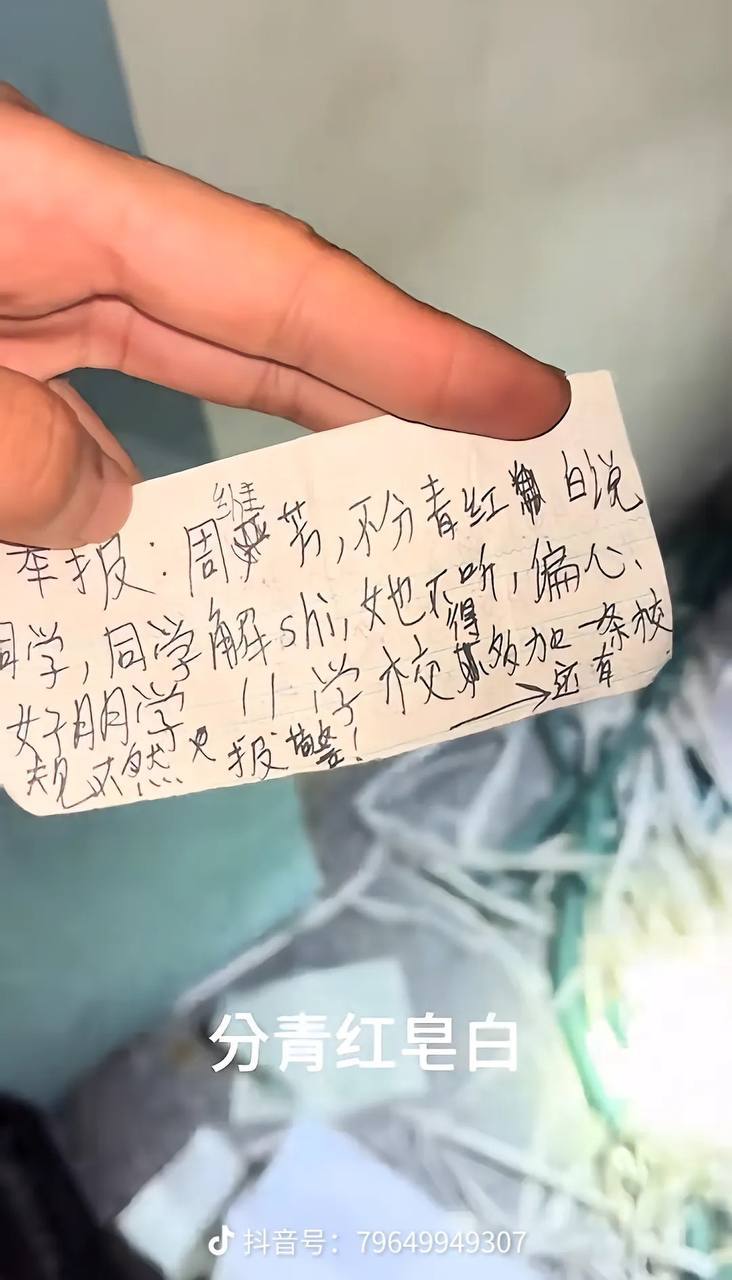 维
举报:周芳,不分青红白说
同学,同学解shi,她不听,偏心、
得
好朋学 学校多加一条校
规不然 报警!→还有
分青红皂白
抖音号:79649949307